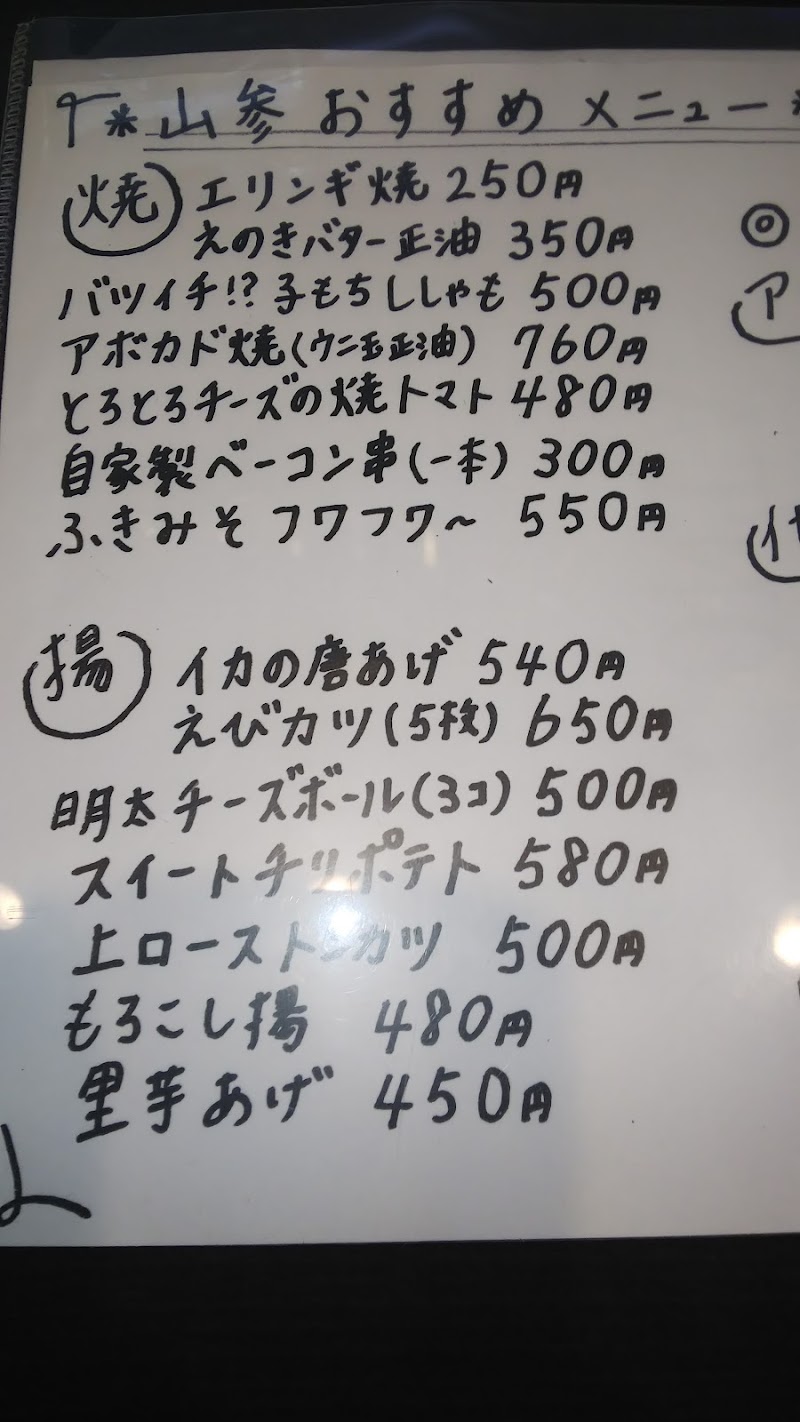 *山参おすすめメニュー*
焼 エリンギ焼 250円
えのきバター正油 350円
バツイチ!?子もちししゃも 500円
アボカド焼(ウニ玉正油) 760円
とろとろチーズの焼トマト 480円
自家製ベーコン串(一本) 300円
ふきみそフワフワ〜 550円
揚 イカの唐あげ 540円
えびカツ(5枚) 650円
明太チーズボール(3コ) 500円
スイートチリポテト 580円
上ローストンカツ 500円
もろこし揚 480円
里芋あげ 450円
◎
ア